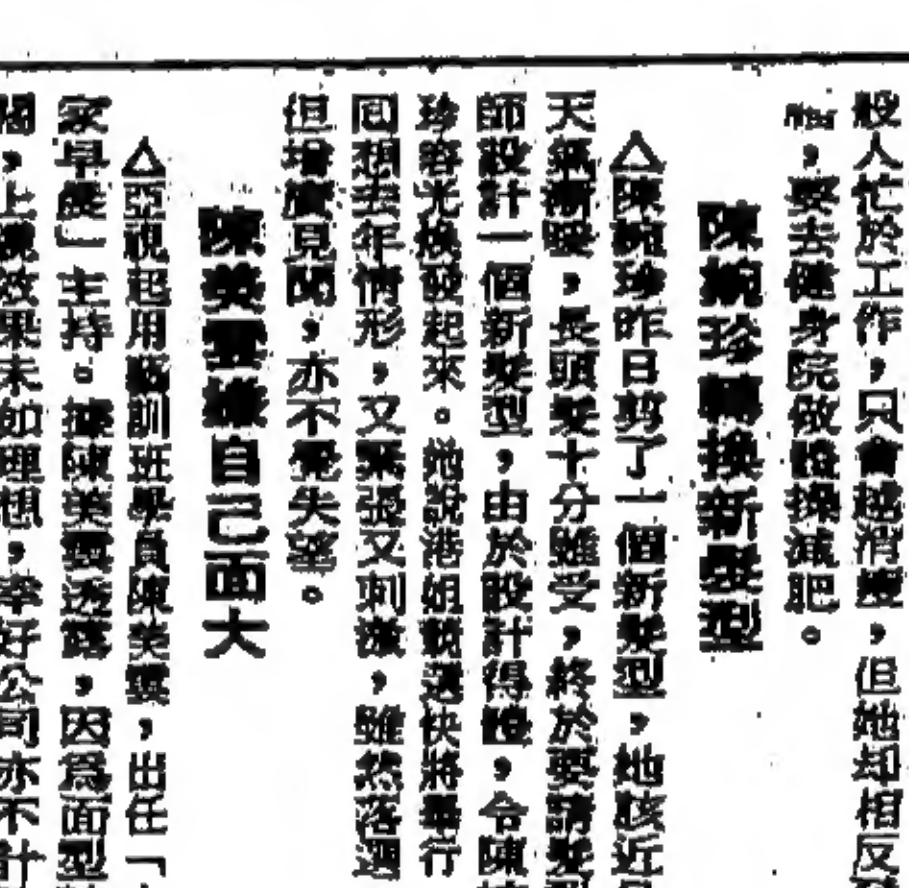 般人忙於工作，只會越消瘦，但她却相反
，要去健身院做體操減肥。
陳婉珍轉換新髮型
△陳婉珍昨日剪了一個新髮型，她該近
天氣漸暖，長頭髮十分難受，終於要請髮型
師設計一個新髮型，由於設計得體，令陳
珍容光煥發起來。她說港姐競選快將舉行
回想去年情形，又緊張又刺激，雖然落選
但增廣見聞，亦不覺失望。
陳美靈嫌自己面大
△亞視起用藝訓班學員陳美靈，出任「
家早晨」主持。據陳美靈透露，因爲面型
闊，上鏡效果未如理想，幸好公司亦不計